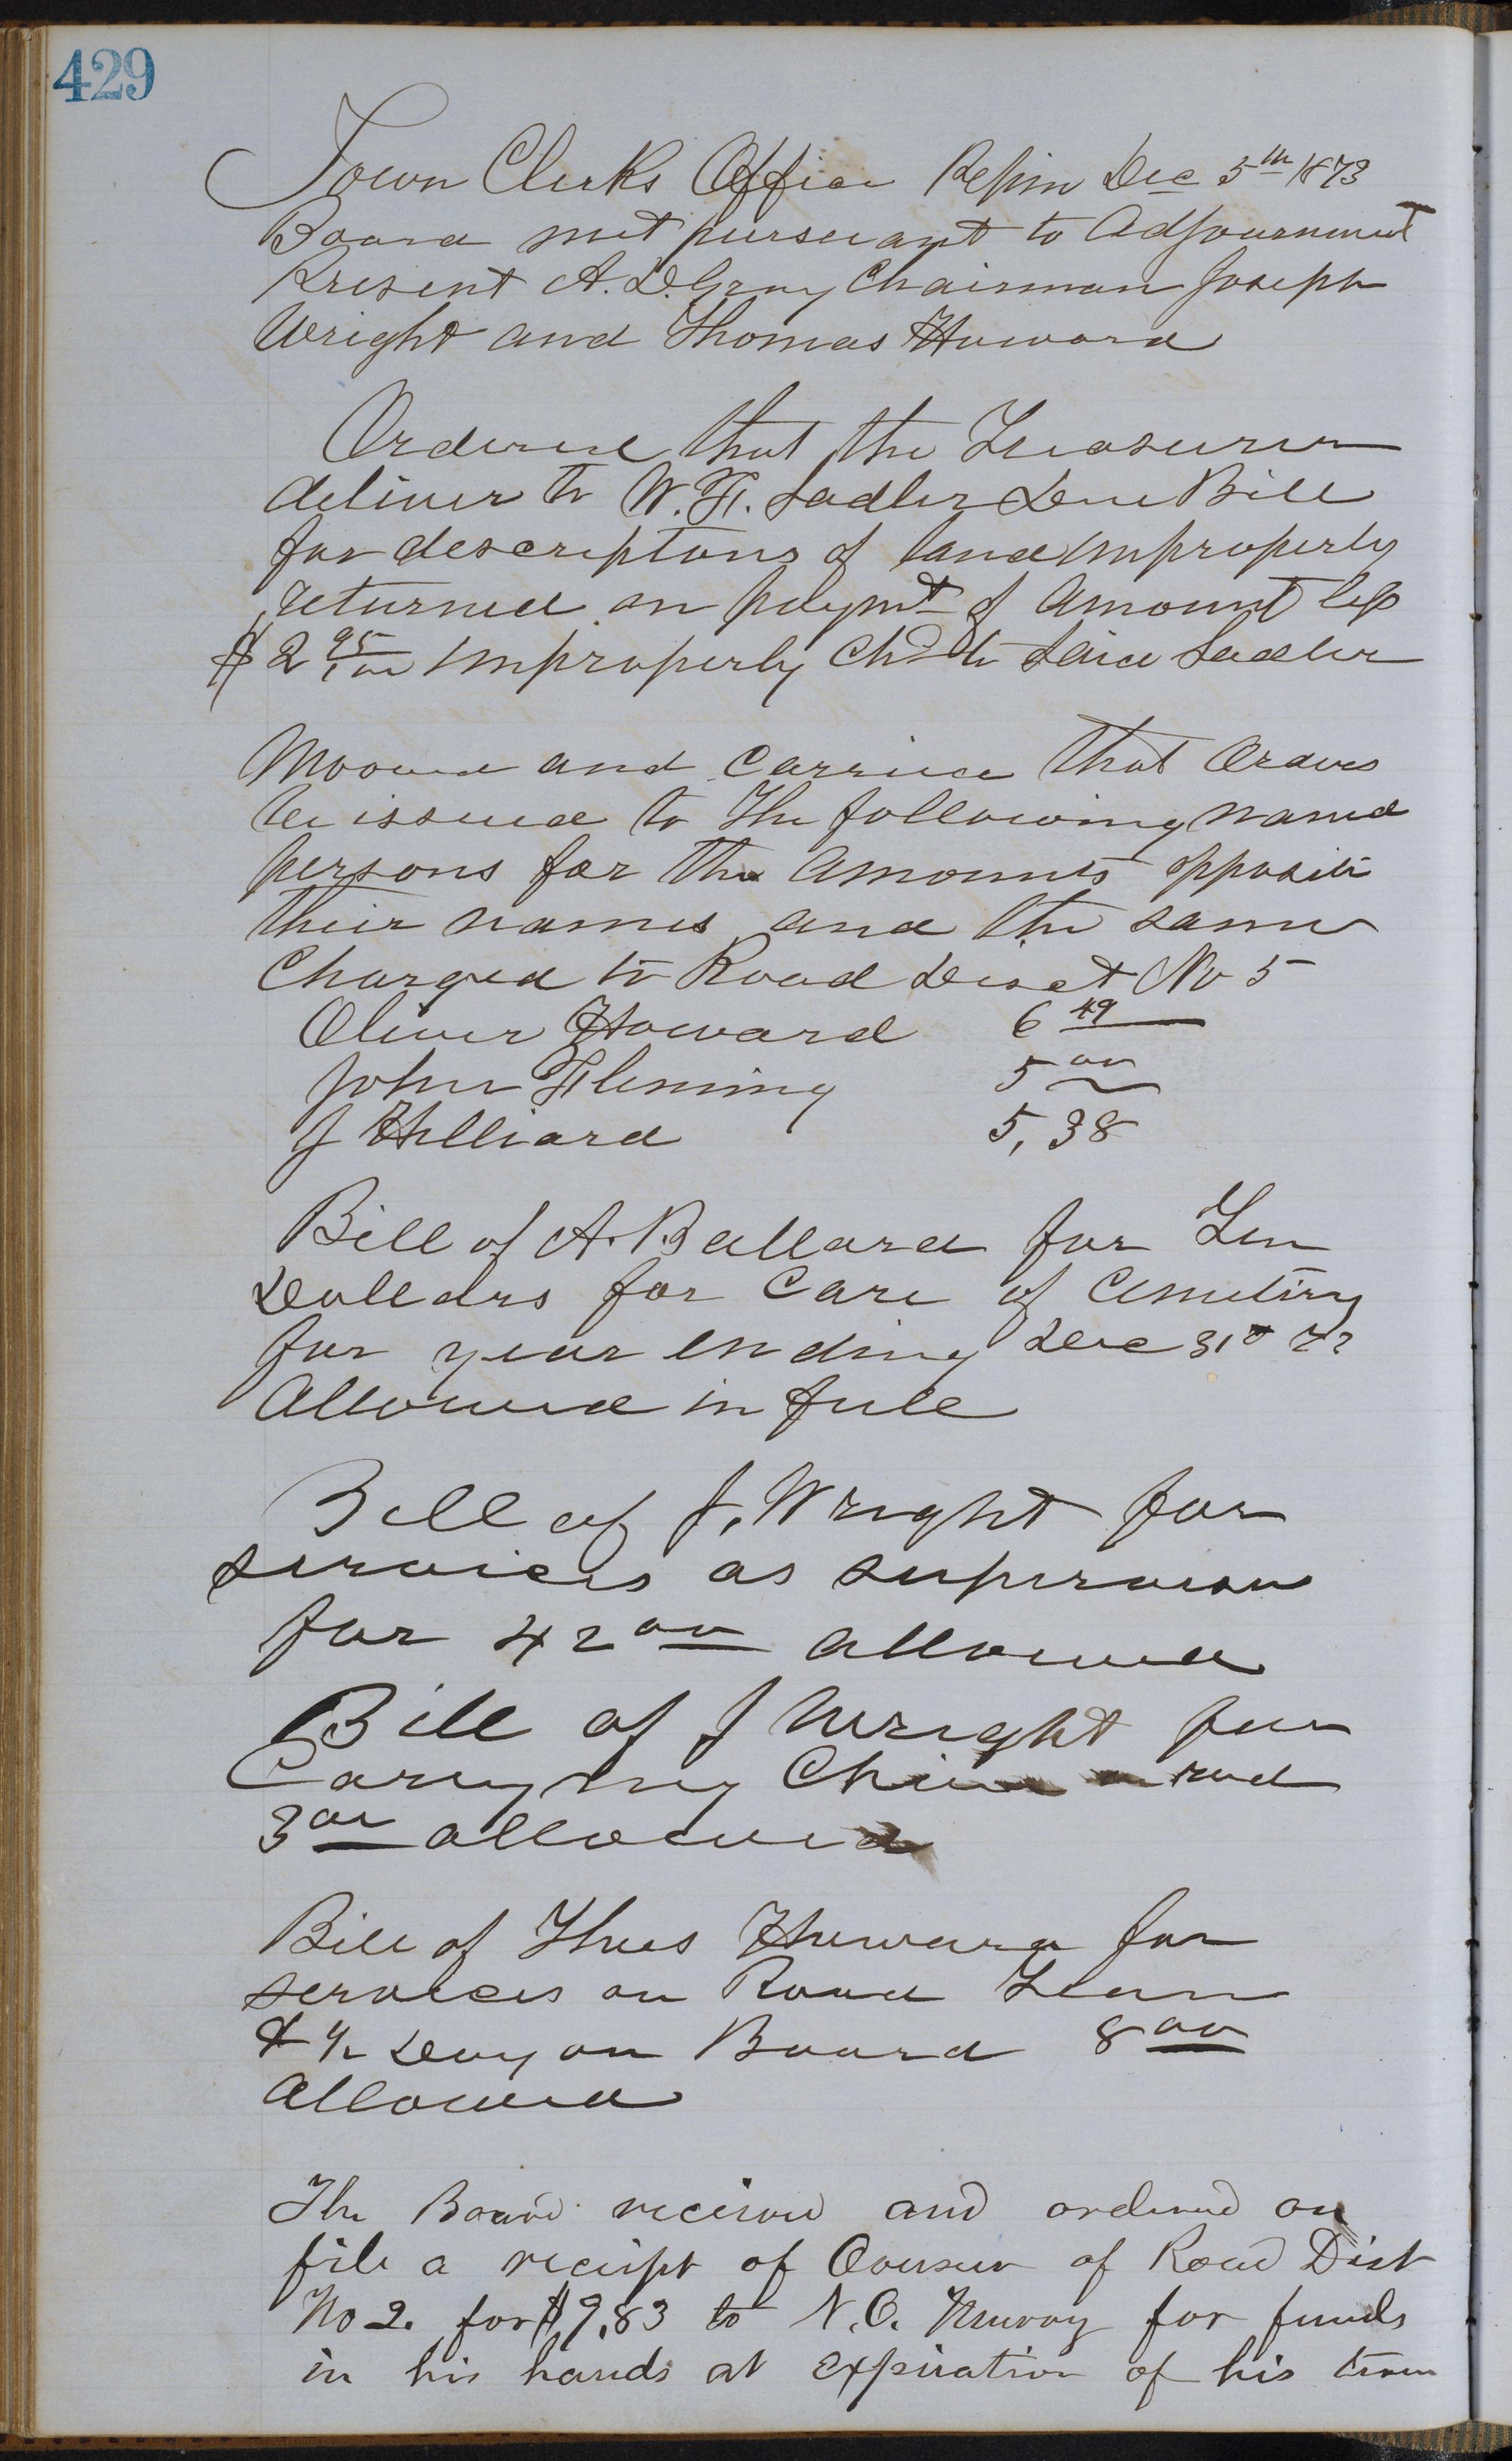 429
Town Clerks Office Repin Dec 5th 1873
Board met pursuant to Adjournment
Present A. D. Gray Chairman Joseph
Wright and Thomas Howard
Ordered that the Treasurer
deliver to W. F. Sadler Due Bill
for descriptons of land improperly
returned on paymt of Amount less
$2 95/100 improperly chd to Said Sadler
Mooved and Carried that Orders
be issued to The following named
persons for the Amounts opposite
their names and the same
Charged to Road Disct No 5
Oliver Howard 6 49
John Fleming 5 00
J Hilliard 5,38
Bill of A. Ballard for Ten
Dolladrs for Care of Cemetiry
for year ending Dec 31st 73
Allowed in full
Bill of J. Wright for
services as supervisor
for 42 00 allowed
Bill of J Wright for
Carrying Chain rod
3 00 allowed
Bill of Thos Howard for
services on Road Team
& 1/2 Day on Board 8 00
Allowed
The Board recieved and ordered on
file a reciept of Overseer of Road Dist
No 2. for $9,83 to N. O. Murray for funds
in his hands at Expiration of his term